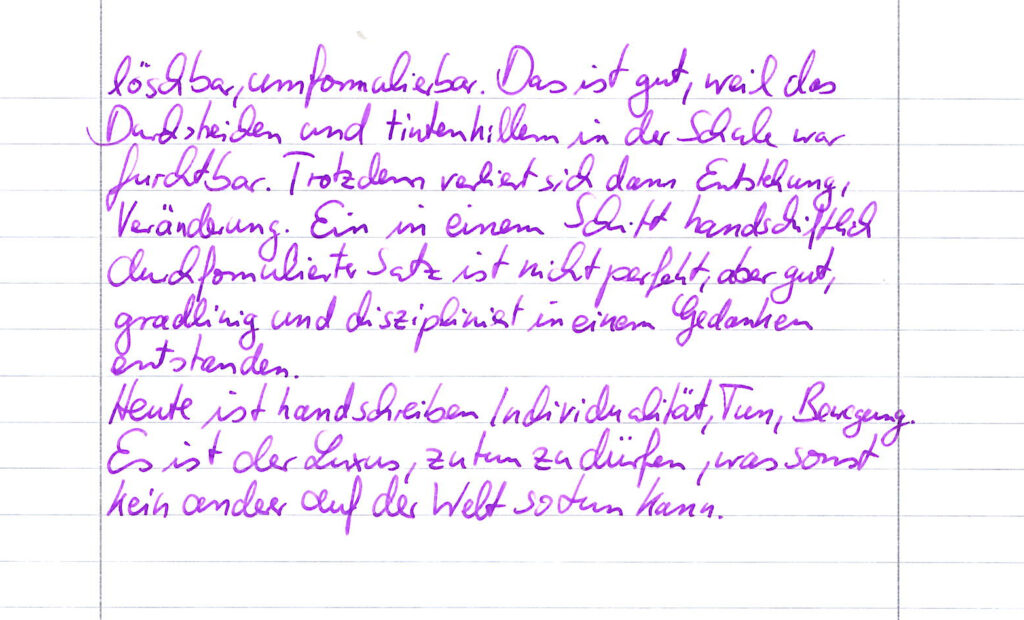 löschbar, umformulierbar. Das ist gut, weil das
Durchstreichen und tintenkillern in der Schule war
furchtbar. Trotzdem verliert sich dann Entstehung,
Veränderung. Ein in einem Schritt handschriftlich
durchformulierter Satz ist nicht perfekt, aber gut,
gradlinig und diszipliniert in einem Gedanken
entstanden.
Heute ist handschreiben Individualität, Tun, Bewegung.
Es ist der Luxus, zu tun zu dürfen, was sonst
kein anderer auf der Welt so tun kann.